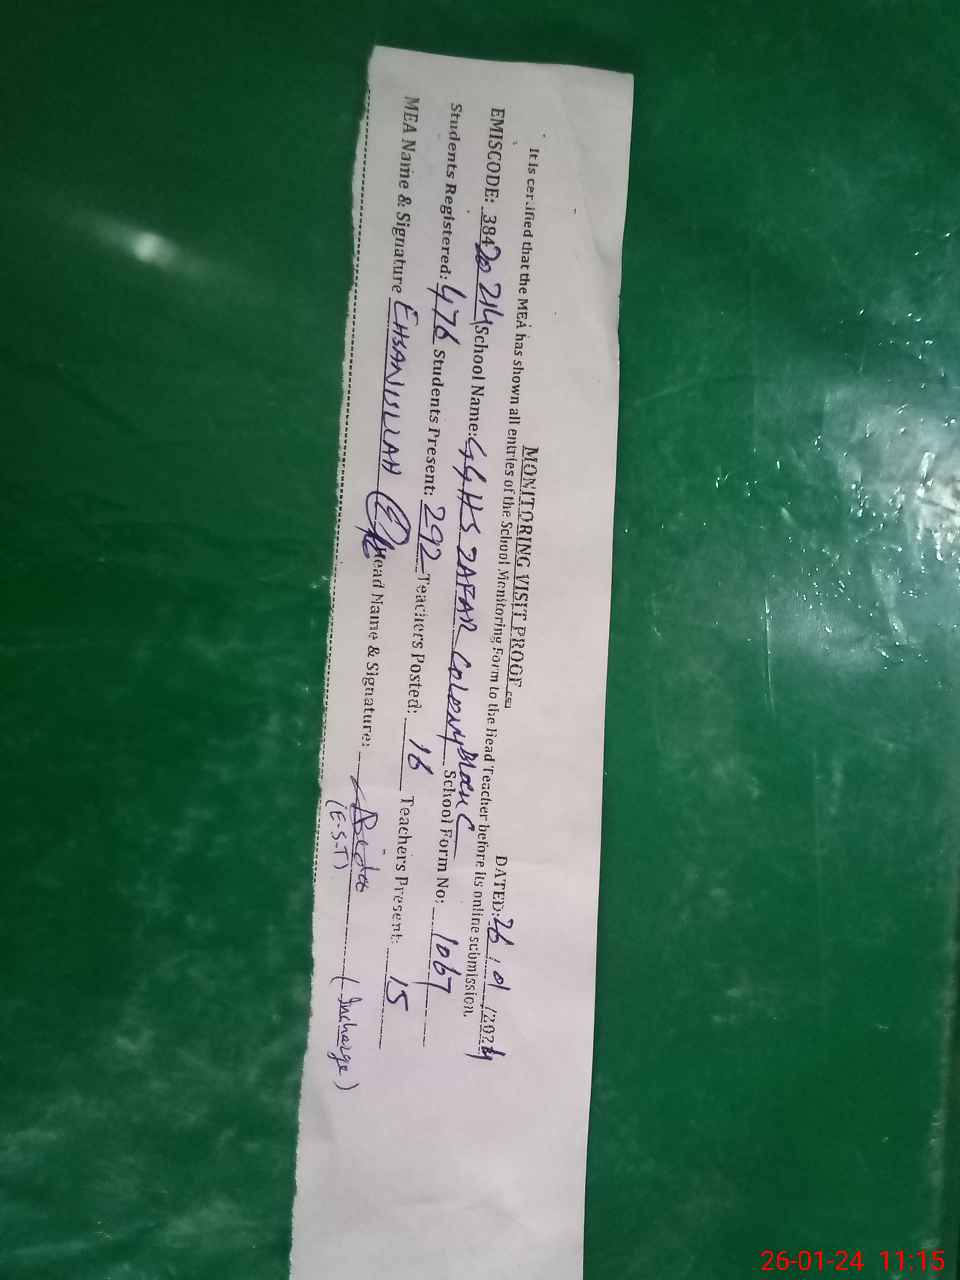 MONITORING VISIT PROOF
DATED: 26/01/2024
It is certified that the MEA has shown all entries of the School Monitoring Form to the Head Teacher before its online submission.
EMISCODE: 38420214 School Name: GGHS ZAFAR COLONY BLOCK C School Form No: 1067
Students Registered: 476 Students Present: 292 Teachers Posted: 16 Teachers Present: 15
MEA Name & Signature EHSANULLAH Head Name & Signature:
(E.S.T) (Incharge)
26-01-24 11:15